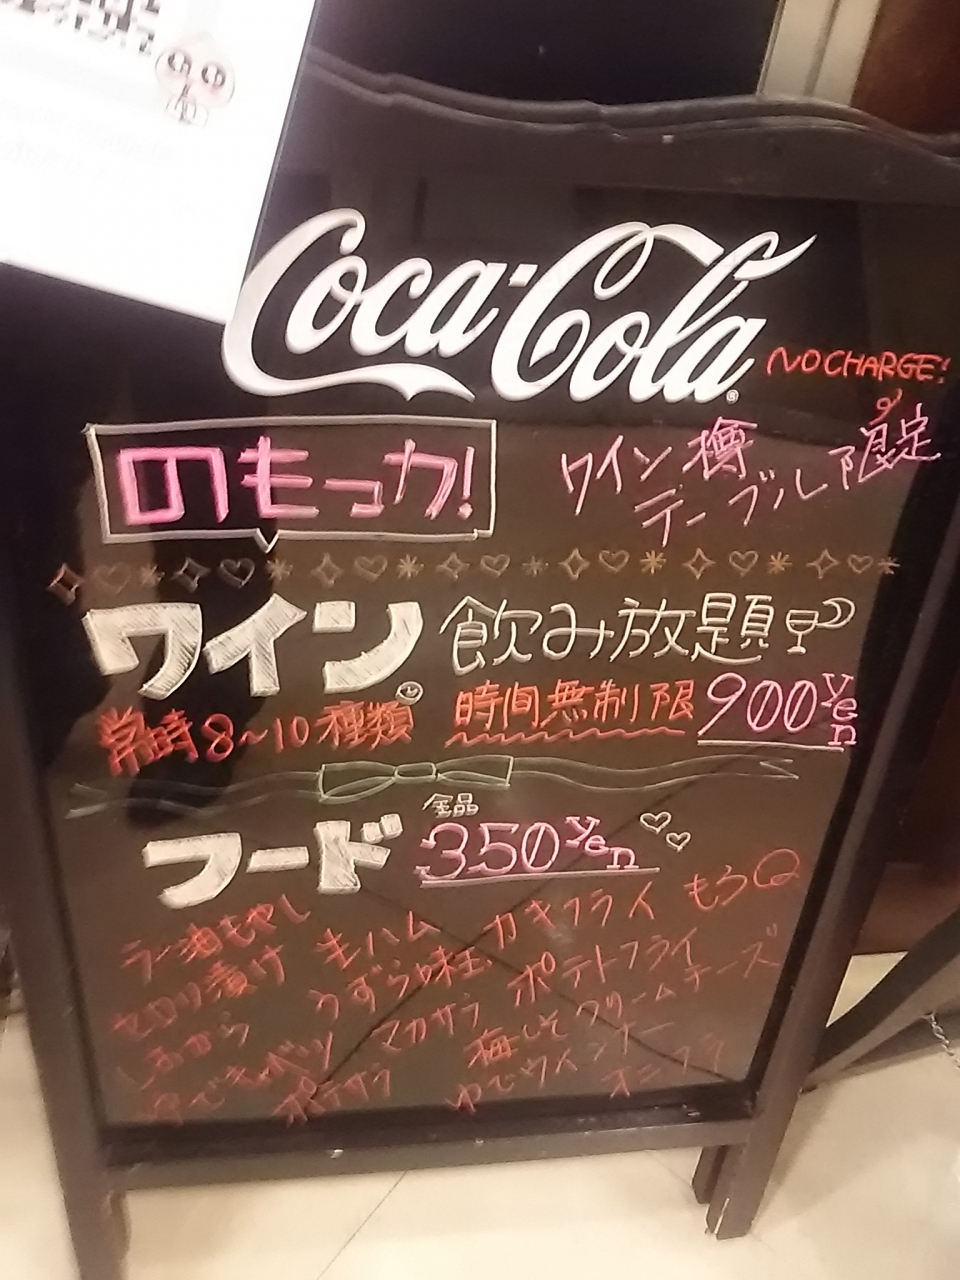 Coca-Cola
NO CHARGE!
のもっカ!
ワイン樽
テーブル限定
ワイン 飲み放題
常時8〜10種類 時間無制限 900yen
全品
フード 350yen
ラー油もやし 生ハム カキフライ もろQ
切り漬け うずら ポテトフライ
マカサラ 梅しそクリームチーズ
ゆでキャベツ ポテサラ ゆでウインナー オニフラ